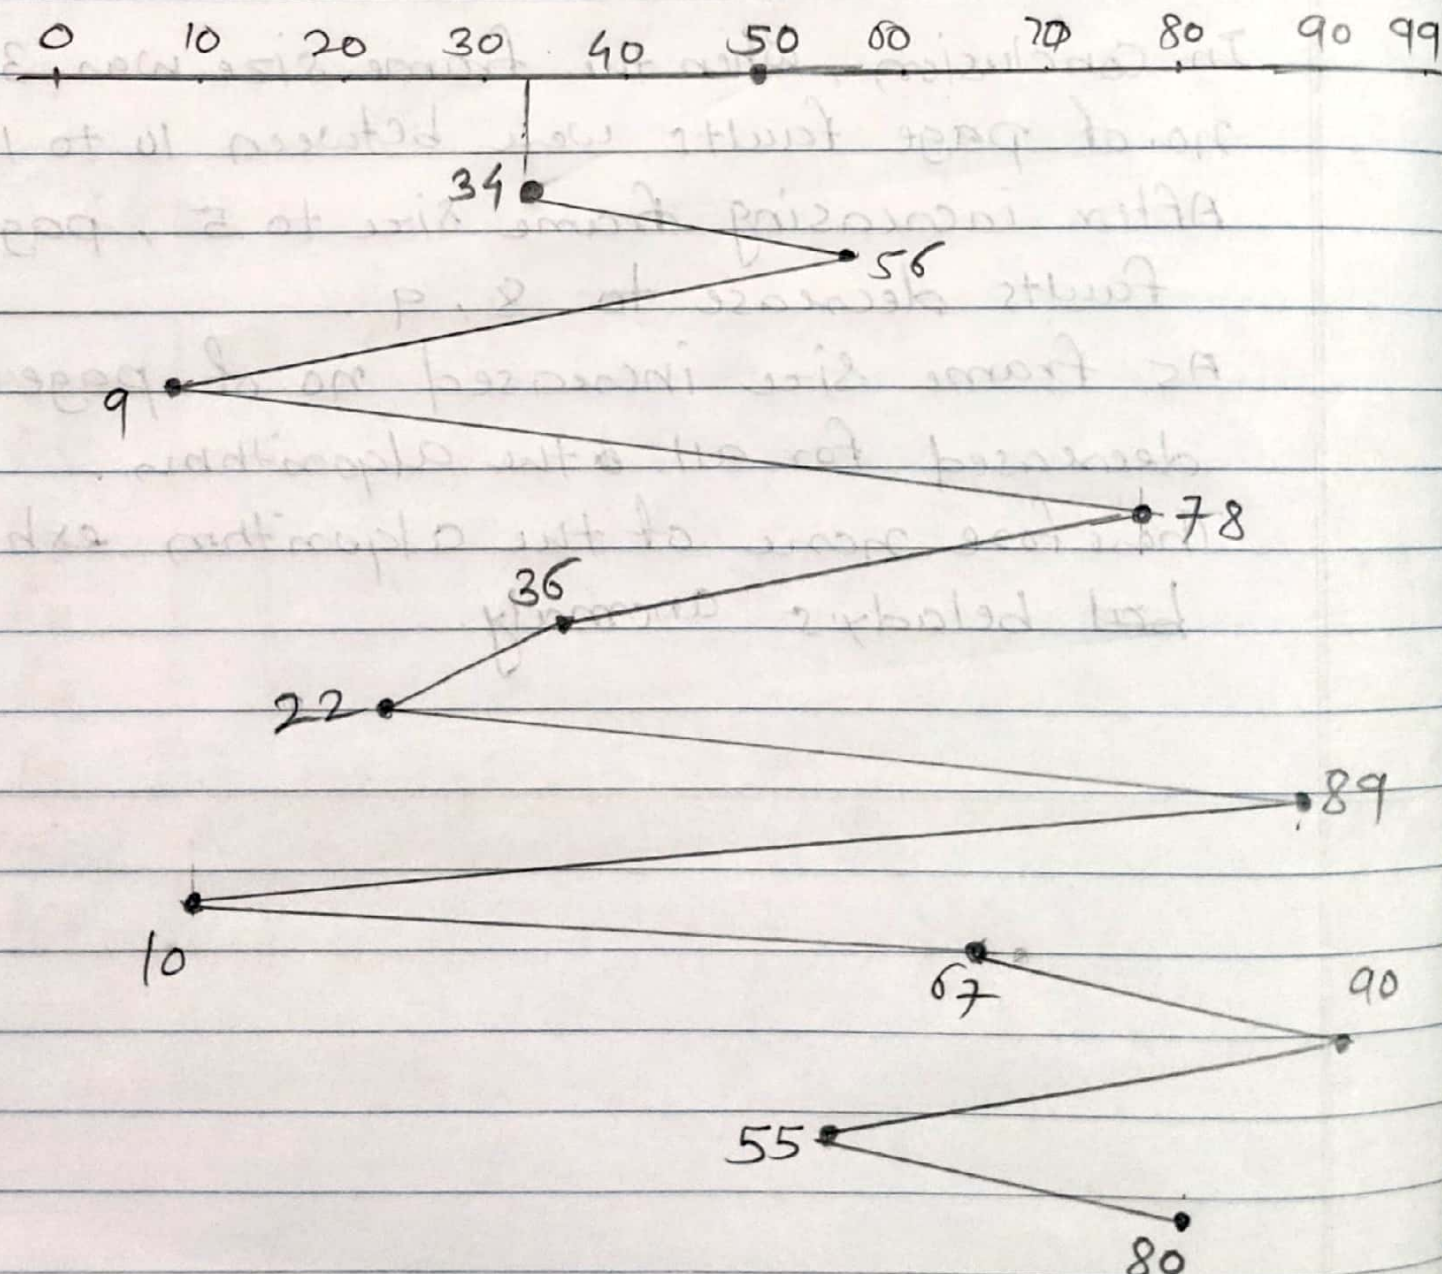 0 10 20 30 40 50 60 70 80 90 99
34
56
9
78
36
22
89
10
67
90
55
80